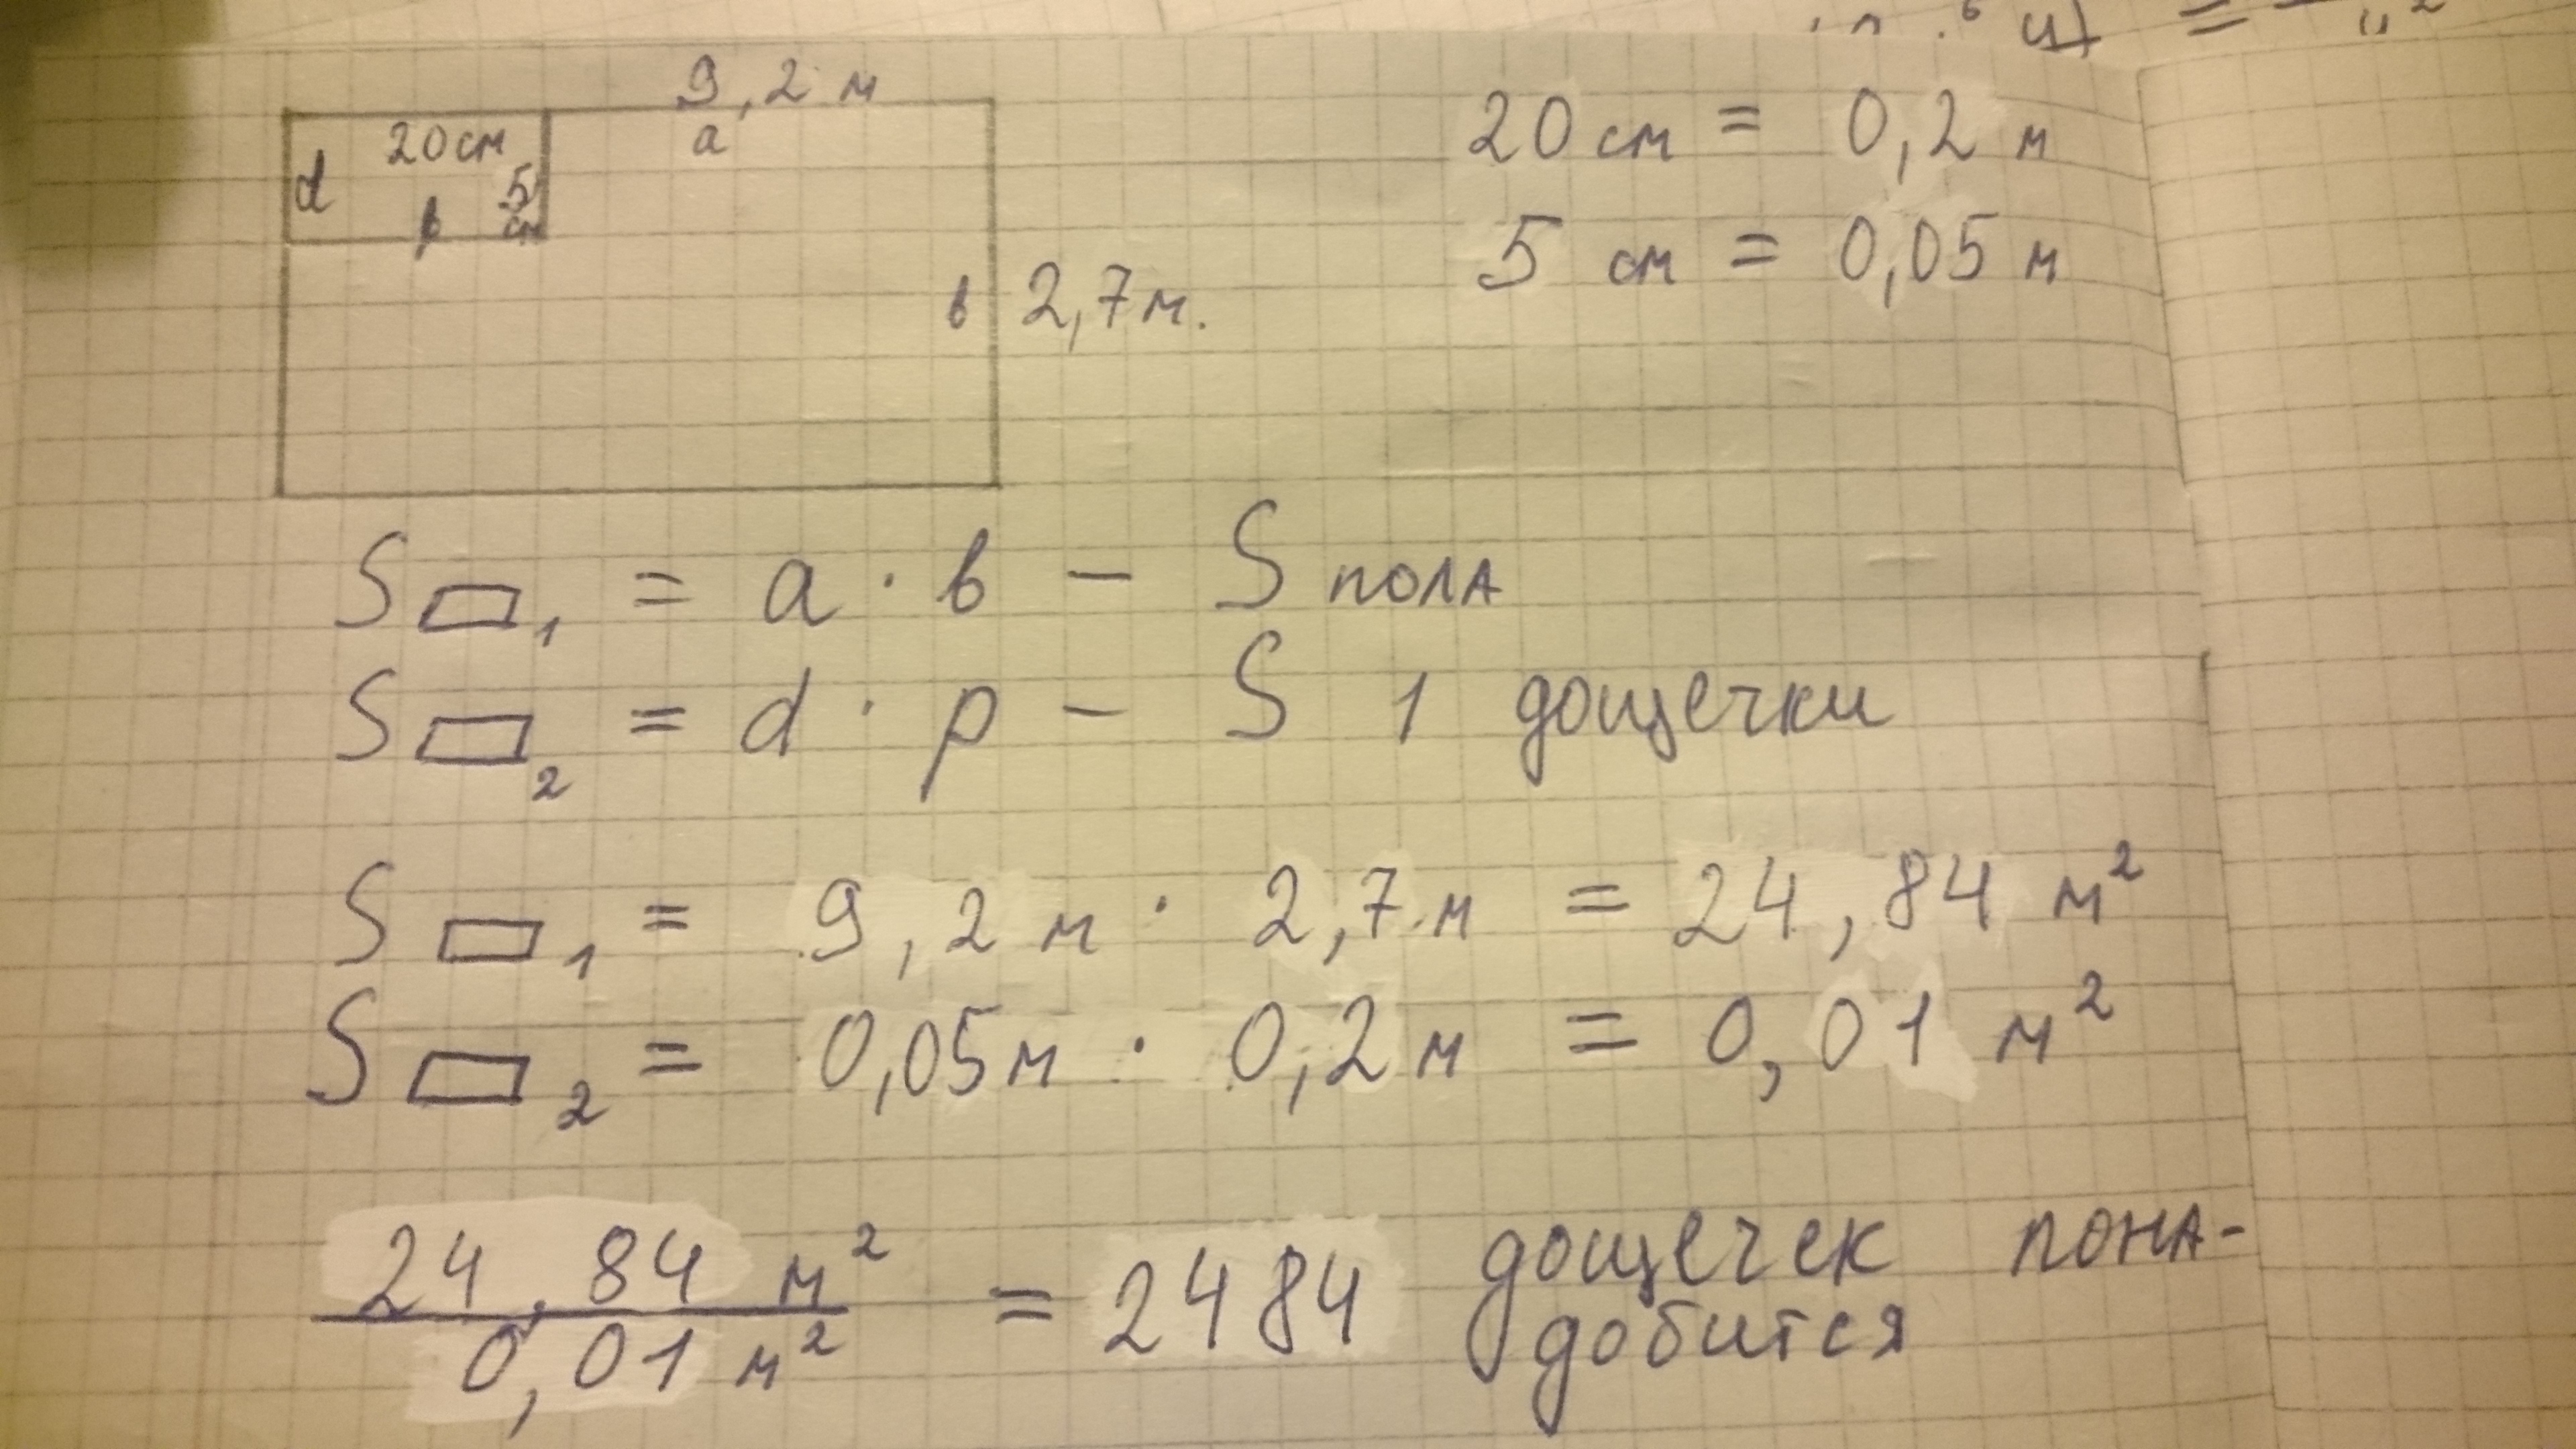 9,2 м
a
20 см
d
5 см
p
в 2,7 м.
20 см = 0,2 м
5 см = 0,05 м
S▱₁ = a · в — S пола
S▱₂ = d · p — S 1 дощечки
S▱₁ = 9,2 м · 2,7 м = 24,84 м²
S▱₂ = 0,05 м · 0,2 м = 0,01 м²
24,84 м² / 0,01 м² = 2484 дощечек пона-
добится